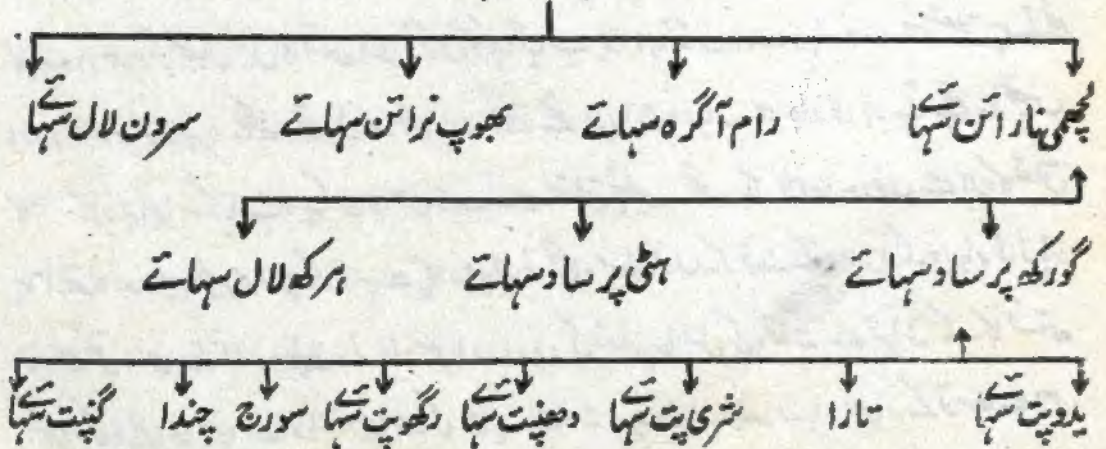 لچھمی نارائن سہائے رام آگرہ سہائے بھوپ نرائن سہائے سردن لال سہائے
گورکھ پرساد سہائے ہٹی پرساد سہائے ہرکھ لال سہائے
یدوپت سہائے تارا شری پت سہائے دھنپت سہائے رگھوپت سہائے سورج چندا گنپت سہائے